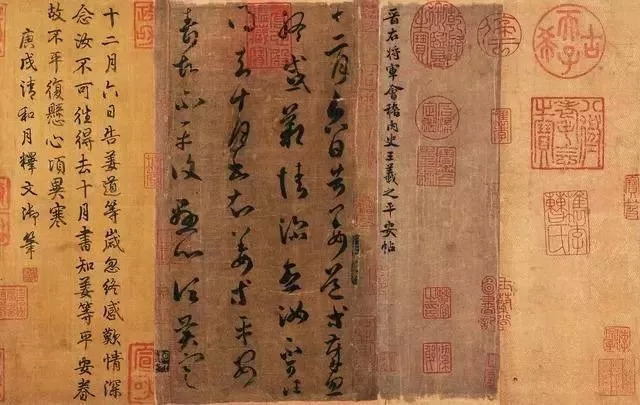 古希天子
八徵耄念之寶
晉右將軍會稽内史王羲之平安帖
十二月六日告姜道等歲忽
終感歎情深念汝不可往
得去十月書知姜等平安
眷故不平復懸心頃異寒
十二月六日告姜道等歲忽終感歎情深
念汝不可徃得去十月書知姜等平安眷
故不平復懸心頃異寒
庚戌清和月釋文御筆